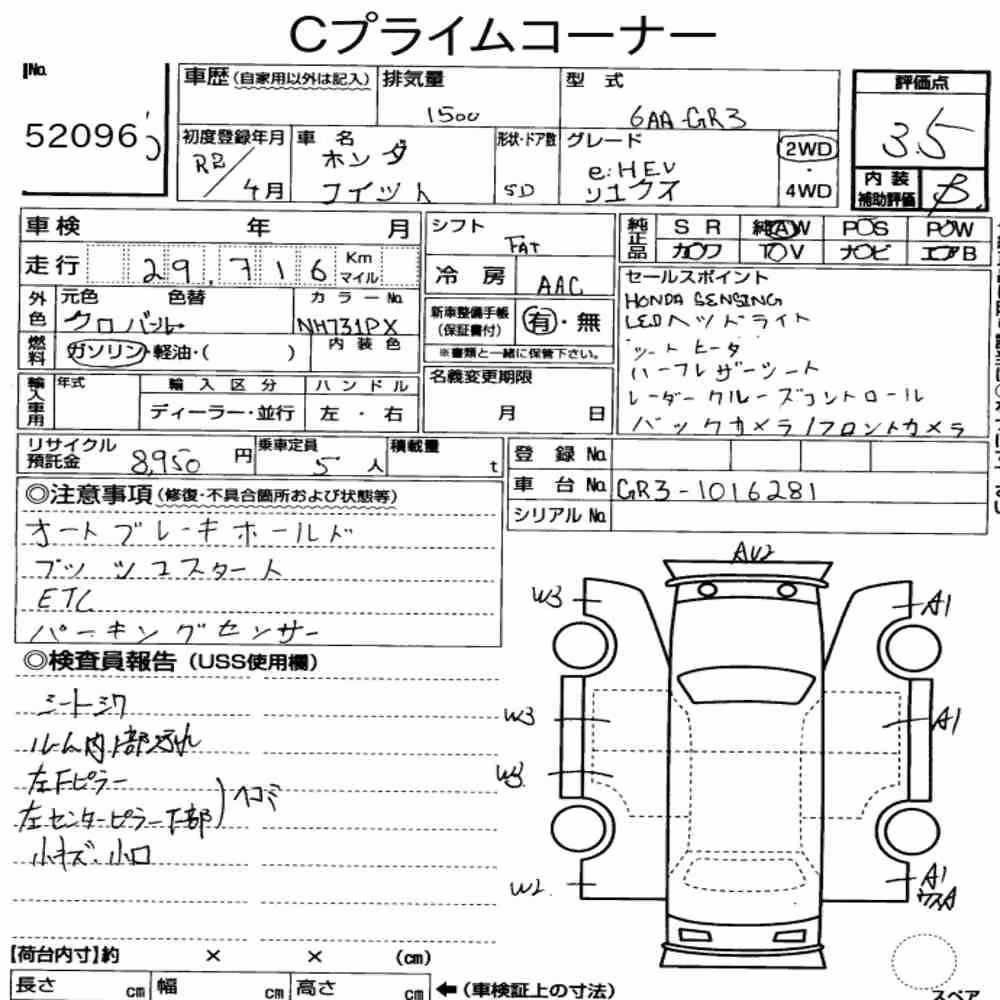 Cプライムコーナー
No.
52096
車歴(自家用以外は記入)
排気量
1500
型 式
6AA-GR3
評価点
3.5
初度登録年月
R2/4月
車 名
ホンダ
フイット
形状・ドア数
5D
グレード
e:HEV
リユクス
2WD
・
4WD
内装
補助評価
B
車検 年 月
走行 29,716 Km
マイル
シフト
FAT
冷 房
AAC
純正品
SR
純AW
PS
PW
カワ
TV
ナビ
エアB
外色
元色 色替
クロパール
カラーNo.
NH731PX
内装色
燃料
ガソリン・軽油・( )
新車整備手帳
(保証書付)
有・無
※書類と一緒に保管下さい。
セールスポイント
HONDA SENSING
LEDヘッドライト
シートヒータ
ハーフレザーシート
レーダークルーズコントロール
バックカメラ/フロントカメラ
輸入車用
年式
輸入区分
ディーラー・並行
ハンドル
左・右
名義変更期限
月 日
リサイクル
預託金
8,950円
乗車定員
5人
積載量
t
登録No.
車台No. GR3-1016281
シリアルNo.
◎注意事項(修復・不具合箇所および状態等)
オートブレーキホールド
プッシュスタート
ETC
パーキングセンサー
◎検査員報告(USS使用欄)
シートシワ
ルーム内1部汚れ
左Fピラー
左センターピラー下部
ヘコミ
小キズ・小凹
AU2
W3
A1
W3
A1
W3
W2
A1
ウスA
【荷台内寸】約 × × (cm)
長さ cm
幅 cm
高さ cm
←(車検証上の寸法)
スペア